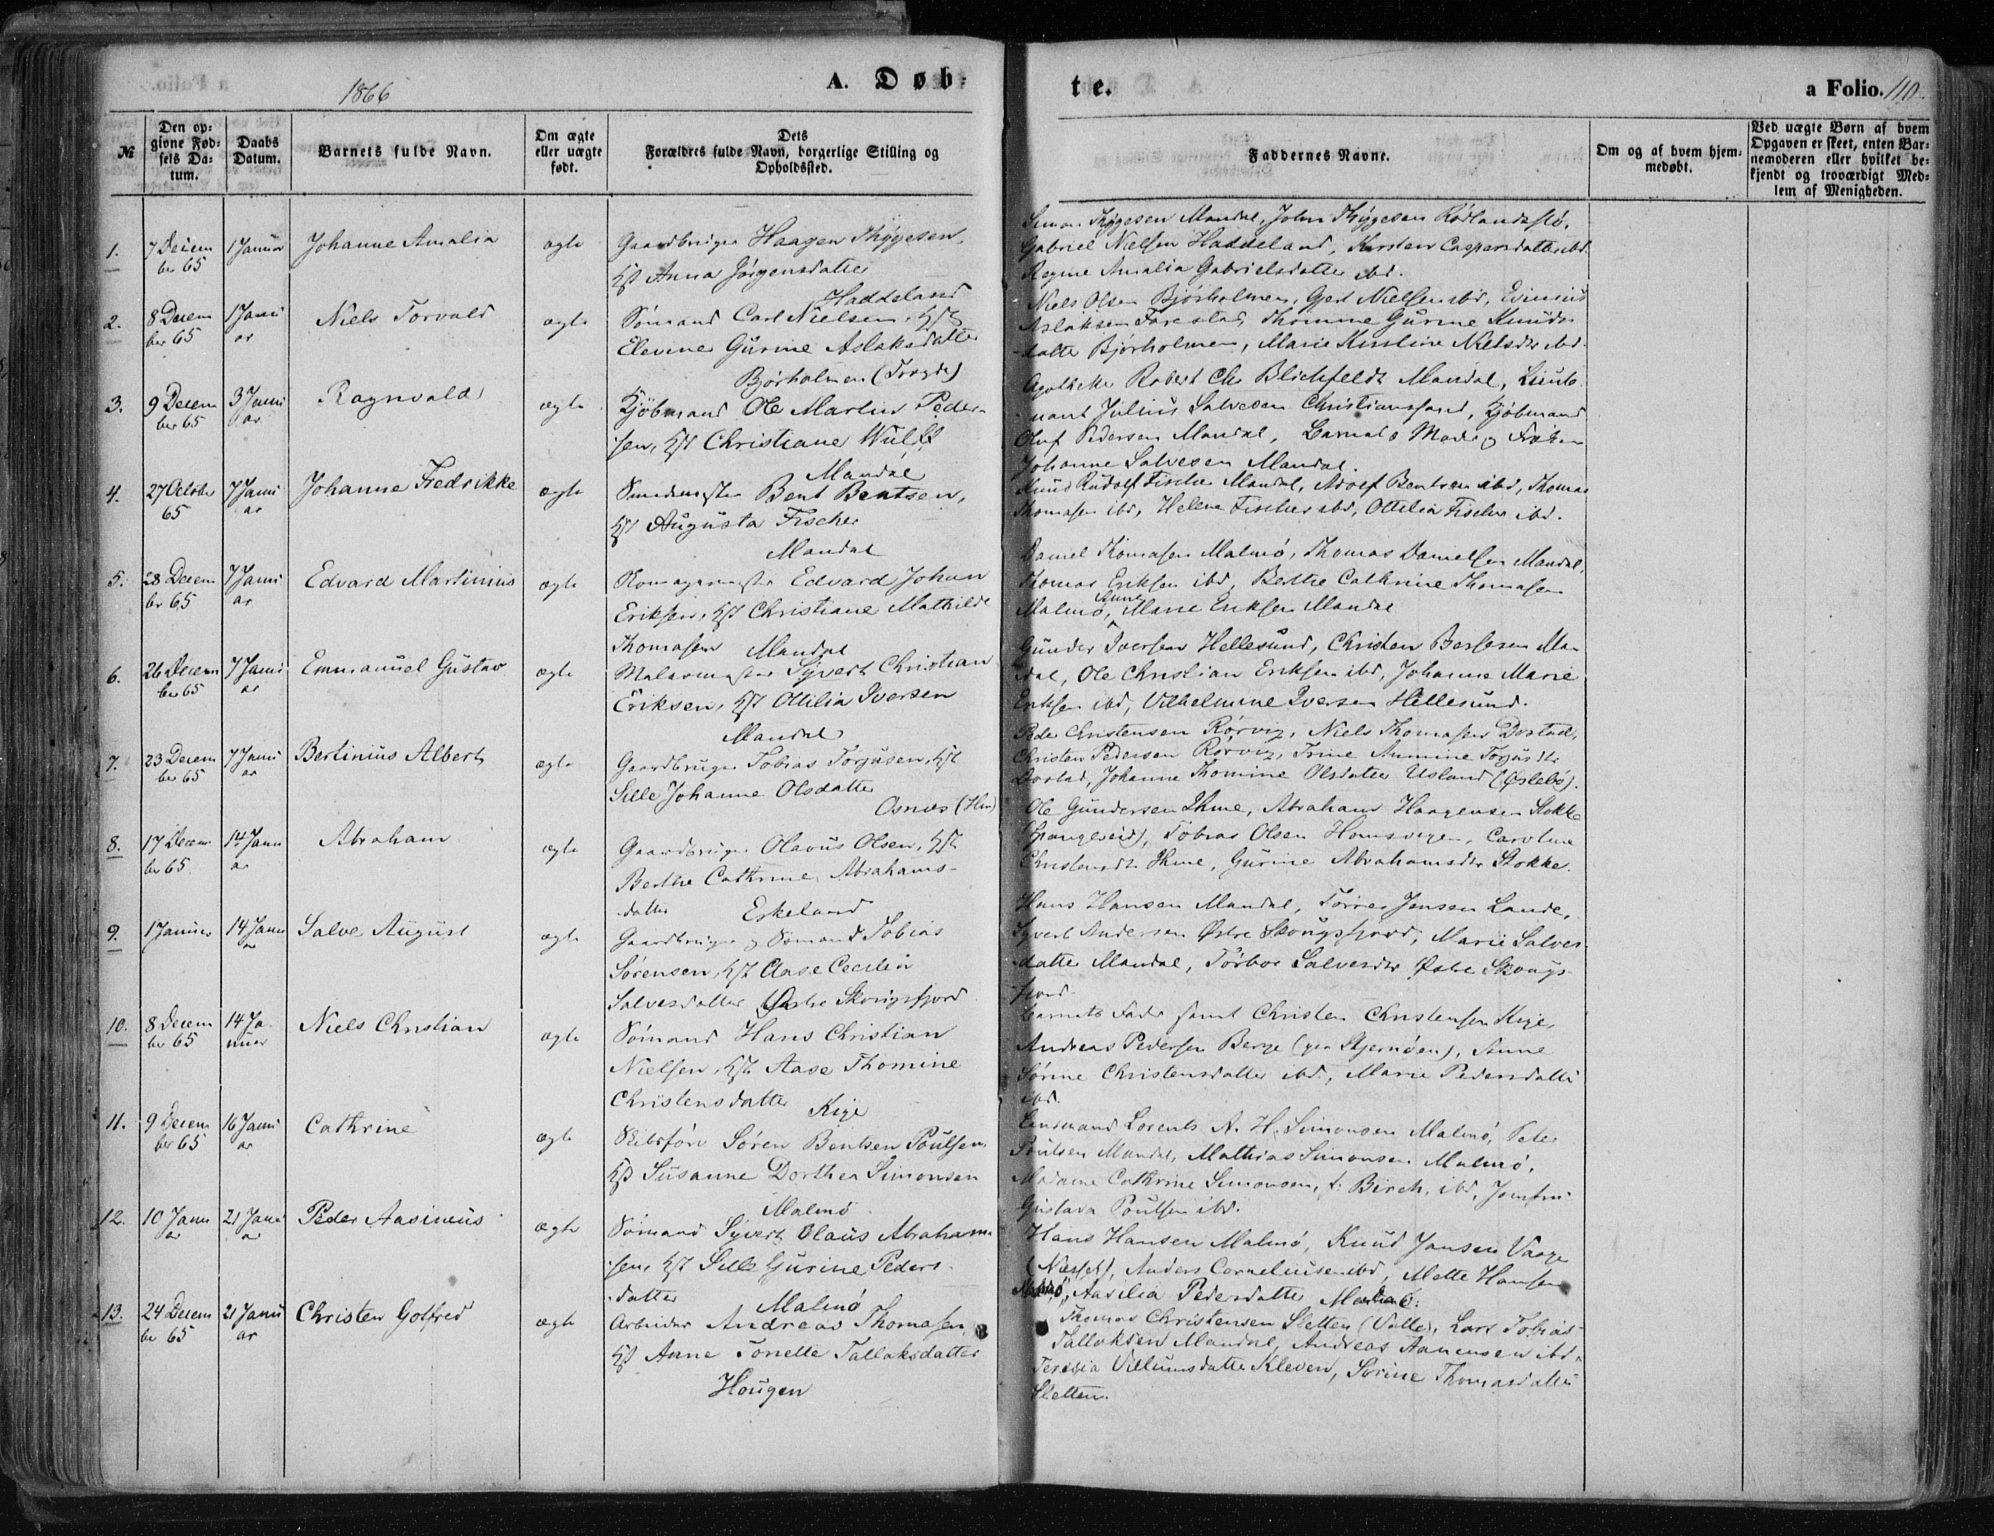 1866
A. Døb-
te.
a Folio. 110.
№
Den op-
givne Fød-
sels Da-
tum.
Daabs
Datum.
Barnets fulde Navn.
Om ægte
eller uægte
født.
Dets
Forældres fulde Navn, borgerlige Stilling og
Opholdssted.
Faddernes Navne.
Om og af hvem hjem-
medøbt.
Ved uægte Børn af hvem
Opgaven er skeet, enten Bar-
nemoderen eller hvilket be-
kjendt og troværdigt Med-
lem af Menigheden.
1.
7 Decem
ber 65
1 Januar
Johanne Amalia
ægte
Gaardbruger Haagen Thygesen,
Hst Anna Jørgensdatter
Haddeland
Simon Thygesen Mandal, John Thygesen
Gabriel Nielsen Haddeland, Kirsten Caspersdatter ibd.
Regine Amalia Gabrielsdatter ibd.
2.
8 Decem
ber 65
1 Janu
ar
Niels Torvald
ægte
Sømand Carl Nielsen, Hst
Elevine Gurine Aslaksdatter
Bjørholmen
Niels Olsen Bjørholmen, Gert Nielsen ibd,
Aslaksen Farestad, Thomine Gurine Knuds
datter Bjørholmen, Marie Kirstine Nielsdtr ibd.
3.
9 Decem
ber 65
3 Janu
ar
Ragnvald
ægte
Kjøbmand Ole Martin Peder-
sen, Hst Christiane Wulff
Mandal
Apotheker Robert Chr Blichfeldt Mandal, Lieute
nant Julius Salvesen Christianssand, Kjøbmand
Oluf Pedersen Mandal, Barnets Moder og Frøken
Johanne Salvesen Mandal.
4.
27 October
65
7 Janu
ar
Johanne Fredrikke
ægte
Smedmester Bent Bentsen,
Hst Augusta Fischer
Mandal
Knud Rudolf Fischer Mandal, Adolf Bentsen ibd, Thomas
Thomasen ibd, Helene Fischer ibd, Ottilia Fischer ibd.
5.
28 Decem
ber 65
7 Janu
ar
Edvard Martinius
ægte
Skomagermester Edvard Johan
Eriksen, Hst Christiane Mathilde
Thomasen Mandal
Daniel Thomasen Malmø, Thomas Danielsen Mandal,
Thomas Eriksen ibd, Berthe Cathrine Thomasen
Malmø, Anne Marie Eriksen Mandal
6.
26 Decem
ber 65
7 Janu
ar
Emmanuel Gustav
ægte
Malermester Syvert Christian
Eriksen, Hst Ottilia Iversen
Mandal
Gunder Iversen Hellesund, Christen Bersesen Man
dal, Ole Christian Eriksen ibd, Johanne Marie
Eriksen ibd, Vilhelmine Iversen Hellesund.
7.
23 Decem
ber 65
7 Janu
ar
Bertinius Albert
ægte
Gaardbruger Tobias Torjusen, Hst
Sille Johanne Olsdatter
Osnes
Peder Christensen Rørvig, Niels Thomasen Dorstad,
Christen Pedersen Rørvig, Trine Anmine Torjusdtr
Dorstad, Johanne Thomine Olsdatter Usland (Øslebø).
8.
17 Decem
ber 65
14 Janu
ar
Abraham
ægte
Gaardbruger Olavus Olsen, Hst
Berthe Cathrine Abrahams-
datter Eskeland
Ole Gundersen Ihme, Abraham Haagensen Stokke
(Spangereid), Tobias Olsen Homsvigen, Caroline
Christensdtr Ihme, Gurine Abrahamsdtr Stokke.
9.
1 Januar
14 Janu
ar
Salve August
ægte
Gaardbruger og Sømand Tobias
Sørensen, Hst Aase Cecilia
Salvesdatter Østre Skougsfjord
Hans Hansen Mandal, Torres Jensen Lande,
Syvert Andersen Østre Skougsfjord, Marie Salves
datter Mandal, Torbor Salvesdtr Østre Skougs-
fjord.
10.
8 Decem
ber 65
14 Ja
nuar
Niels Christian
ægte
Sømand Hans Christian
Nielsen, Hst Aase Thomine
Christensdatter Kige
Barnets Fader samt Christen Christensen Kige,
Andreas Pedersen Berge (paa Skjernøen), Anne
Sørine Christensdatter ibd., Marie Pedersdatter
ibd.
11.
9 Decem
ber 65
16 Janu
ar
Cathrine
ægte
Skibsfører Søren Bentsen Poulsen
Hst Susanne Dorthea Simonsen
Malmø
Lensmand Lorents A. H. Simonsen Malmø, Peter
Poulsen Mandal, Mathias Simonsen Malmø,
Madame Cathrine Simonsen, f. Birch, ibd, Jomfru
Gustava Poulsen ibd.
12.
10 Janu
ar
21 Janu
ar
Peder Aasineus
ægte
Sømand Syvert Olaus Abraham-
sen, Hst Sille Gurine Peders-
datter Malmø
Hans Hansen Malmø, Knud Jansen Vaage
(Næsset), Anders Corneliusen ibd, Mette Hansen
Malmø, Aasilia Pedersdatter Malmø.
13.
24 Decem
ber 65
21 Janu
ar
Christen Gotfred
ægte
Arbeider Andreas Thomasen,
Hst Anne Tonette Tallaksdatter
Hougen
Thomas Christensen Sletten (Valle), Lars Tobias
Tallaksen Mandal, Andreas Aanensen ibd,
Teresia Villumsdatter Kleven, Sørine Thomasdatter
Sletten.